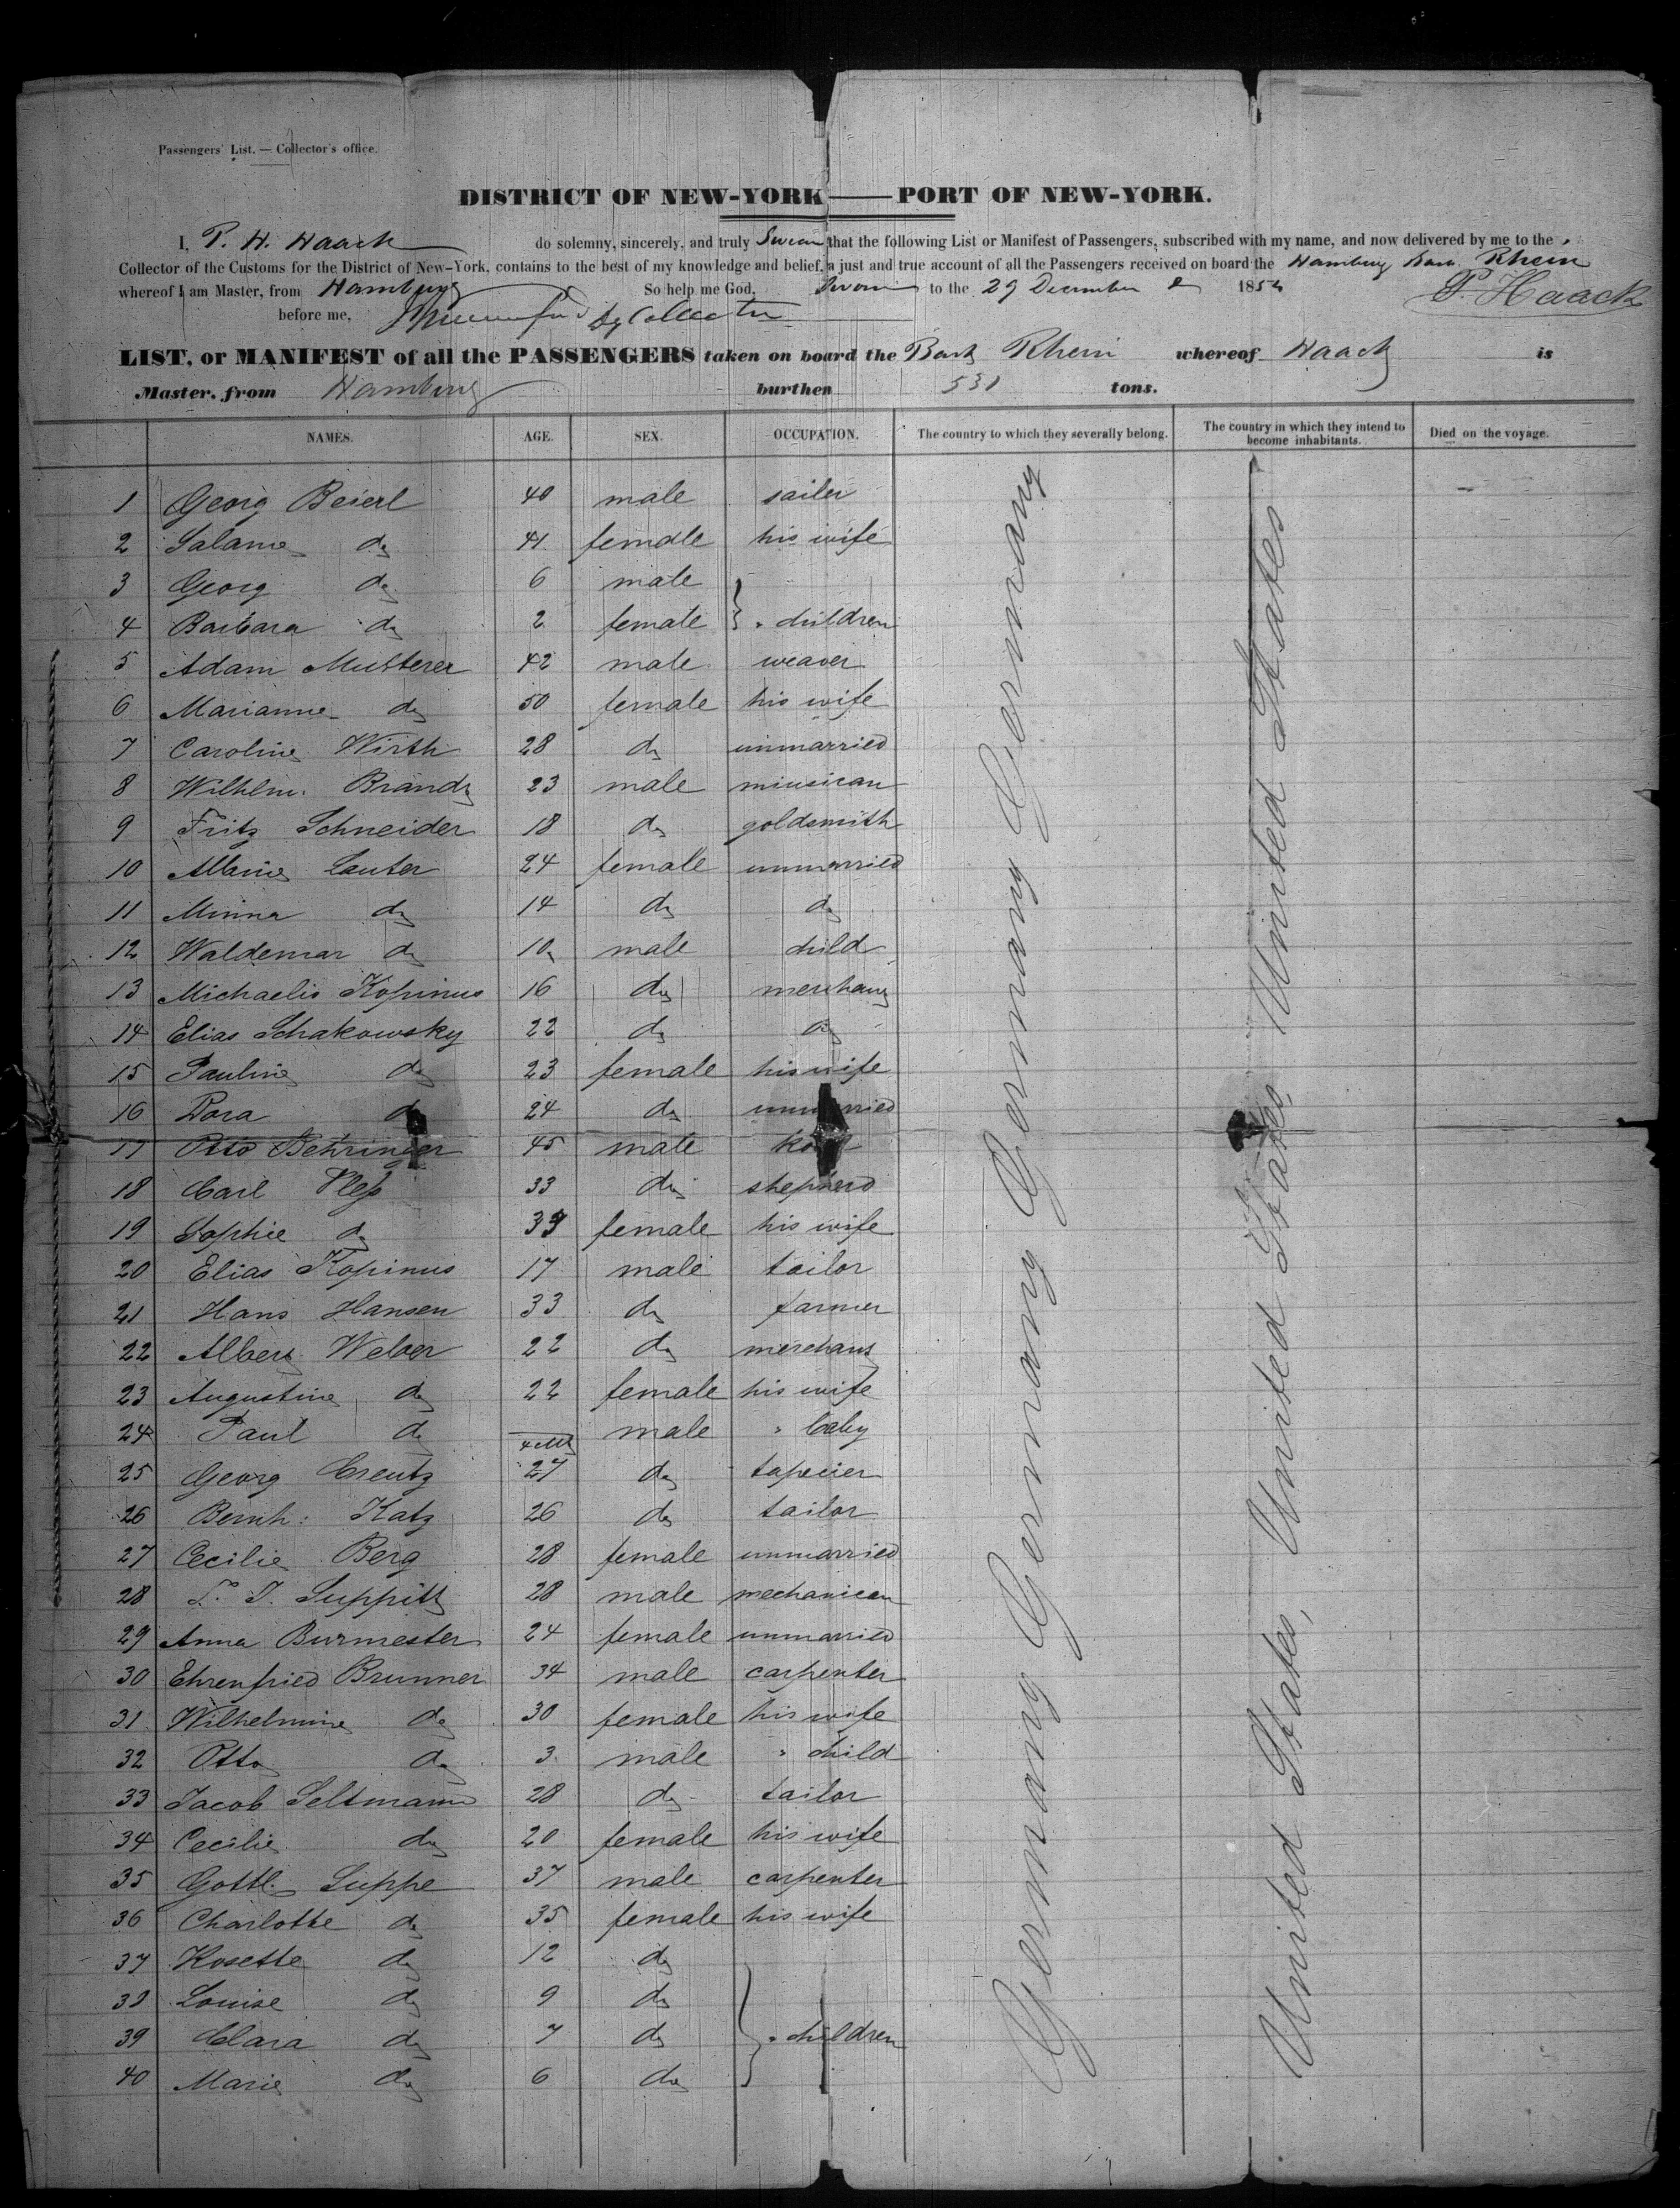 Passengers' List. — Collector's office.
DISTRICT OF NEW-YORK — PORT OF NEW-YORK.
I, P. H. Haack do solemny, sincerely, and truly Swear that the following List or Manifest of Passengers, subscribed with my name, and now delivered by me to the
Collector of the Customs for the District of New-York, contains to the best of my knowledge and belief, a just and true account of all the Passengers received on board the Hamburg Bark Rhein
whereof I am Master, from Hamburg So help me God, Sworn to the 29 December 185
P. Haack
before me, Dy Collector
LIST, or MANIFEST of all the PASSENGERS taken on board the Bark Rhein whereof Haack is
Master, from Hamburg burthen 531 tons.
NAMES. AGE. SEX. OCCUPATION. The country to which they severally belong. The country in which they intend to become inhabitants. Died on the voyage.
1 Georg Beierl 40 male sailer
2 Salame do 41 female his wife
3 Georg do 6 male
4 Barbara do 2 female } " children
5 Adam Musterer 42 male weaver
6 Marianne do 50 female his wife
7 Caroline Wirth 28 do unmarried
8 Wilhlm. Brandt 23 male miusican
9 Fritz Schneider 18 do goldsmith
10 Marie Lauter 24 female unmarried
11 Minna do 14 do do
12 Waldemar do 10 male child
13 Michaelis Kopinus 16 do merchant
14 Elias Schakowsky 22 do do
15 Pauline do 23 female his wife
16 Dora do 24 do unmarried
17 Otto Behringer 45 male
18 Carl 33 do shepherd
19 Sophie do 33 female his wife
20 Elias Kopinus 17 male tailor
21 Hans Hansen 33 do farmer
22 Albert Weber 22 do merchant
23 Augustine do 22 female his wife
24 Paul do 4 M male " baby
25 Georg Creutz 27 do tapecier
26 Bernh: Katz 26 do tailor
27 Cecilie Berg 28 female unmarried
28 Suppitt 28 male mechanican
29 Anna Burmester 24 female unmarried
30 Ehrenfried Brunner 34 male carpenter
31 Wilhelmine do 30 female his wife
32 Otto do 3 male " child
33 Jacob Seltmann 28 do tailor
34 Cecilie do 20 female his wife
35 Gottl. Suppe 37 male carpenter
36 Charlotte do 35 female his wife
37 Rosette do 12 do
38 Louise do 9 do
39 Clara do 7 do } " children
40 Marie do 6 do
Germany Germany Germany Germany Germany
United States, United States, United States